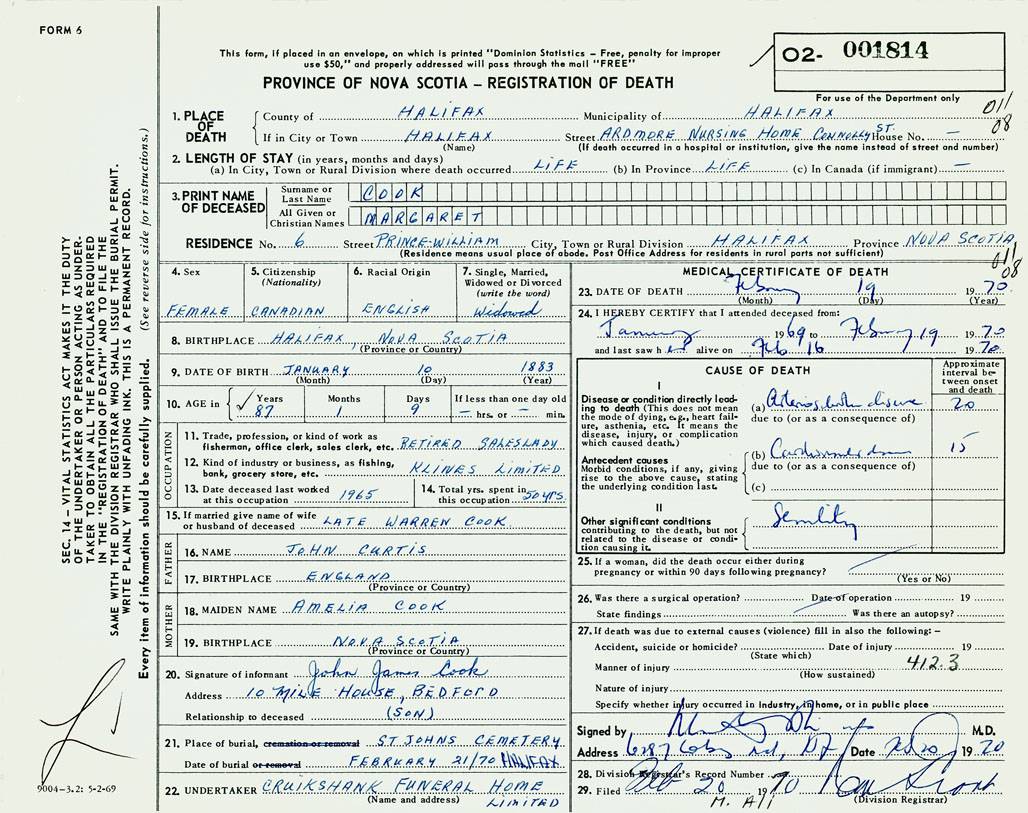 FORM 6
This form, if placed in an envelope, on which is printed "Dominion Statistics – Free, penalty for improper
use $50," and properly addressed will pass through the mail "FREE"
PROVINCE OF NOVA SCOTIA – REGISTRATION OF DEATH
O2- 001814
For use of the Department only
011
08
1. PLACE OF DEATH
County of HALIFAX Municipality of HALIFAX
If in City or Town HALIFAX Street ARDMORE NURSING HOME CONNOLLY ST. House No. –
(Name) (If death occurred in a hospital or institution, give the name instead of street and number)
2. LENGTH OF STAY (in years, months and days)
(a) In City, Town or Rural Division where death occurred LIFE (b) In Province LIFE (c) In Canada (if immigrant) –
3. PRINT NAME OF DECEASED
Surname or Last Name COOK
All Given or Christian Names MARGARET
RESIDENCE No. 6 Street PRINCE-WILLIAM City, Town or Rural Division HALIFAX Province NOVA SCOTIA
(Residence means usual place of abode. Post Office Address for residents in rural parts not sufficient)
011
08
4. Sex 5. Citizenship (Nationality) 6. Racial Origin 7. Single, Married, Widowed or Divorced (write the word)
FEMALE CANADIAN ENGLISH Widowed
8. BIRTHPLACE HALIFAX, NOVA SCOTIA
(Province or Country)
9. DATE OF BIRTH JANUARY 10 1883
(Month) (Day) (Year)
10. AGE in Years Months Days If less than one day old
87 1 9 – hrs. or – min.
OCCUPATION
11. Trade, profession, or kind of work as
fisherman, office clerk, sales clerk, etc. RETIRED SALESLADY
12. Kind of industry or business, as fishing,
bank, grocery store, etc. KLINES LIMITED
13. Date deceased last worked
at this occupation 1965
14. Total yrs. spent in
this occupation 50 yrs.
15. If married give name of wife
or husband of deceased LATE WARREN COOK
FATHER
16. NAME JOHN CURTIS
17. BIRTHPLACE ENGLAND
(Province or Country)
MOTHER
18. MAIDEN NAME AMELIA COOK
19. BIRTHPLACE NOVA SCOTIA
(Province or Country)
20. Signature of informant John James Cook
Address 10 MILE HOUSE, BEDFORD
Relationship to deceased (SON)
21. Place of burial, cremation or removal ST JOHNS CEMETERY
Date of burial or removal FEBRUARY 21/70 HALIFAX
22. UNDERTAKER CRUIKSHANK FUNERAL HOME
(Name and address) LIMITED
MEDICAL CERTIFICATE OF DEATH
23. DATE OF DEATH February 19 1970
(Month) (Day) (Year)
24. I HEREBY CERTIFY that I attended deceased from:
January 1969 to February 19 1970
and last saw her alive on Feb 16 1970
CAUSE OF DEATH
Approximate interval between onset and death
I
Disease or condition directly leading
to death (This does not mean
the mode of dying, e.g., heart failure,
asthenia, etc. It means the
disease, injury, or complication
which caused death.)
(a) 20
due to (or as a consequence of)
Antecedent causes
Morbid conditions, if any, giving
rise to the above cause, stating
the underlying condition last.
(b) 15
due to (or as a consequence of)
(c)
II
Other significant conditions
contributing to the death, but not
related to the disease or condition
causing it.
Senility
25. If a woman, did the death occur either during
pregnancy or within 90 days following pregnancy?
(Yes or No)
26. Was there a surgical operation? Date of operation 19
State findings Was there an autopsy?
27. If death was due to external causes (violence) fill in also the following: –
Accident, suicide or homicide? Date of injury 19
(State which)
412.3
Manner of injury
(How sustained)
Nature of injury
Specify whether injury occurred in Industry, in home, or in public place
Signed by M.D.
Address Date 1970
28. Division Registrar's Record Number
29. Filed Feb 20 1970
(Division Registrar)
SEC. 14 – VITAL STATISTICS ACT MAKES IT THE DUTY
OF THE UNDERTAKER OR PERSON ACTING AS UNDERTAKER
TO OBTAIN ALL THE PARTICULARS REQUIRED
IN THE "REGISTRATION OF DEATH" AND TO FILE THE
SAME WITH THE DIVISION REGISTRAR WHO SHALL ISSUE THE BURIAL PERMIT.
WRITE PLAINLY WITH UNFADING INK. THIS IS A PERMANENT RECORD.
Every item of information should be carefully supplied. (See reverse side for instructions.)
9004-3.2: 5-2-69